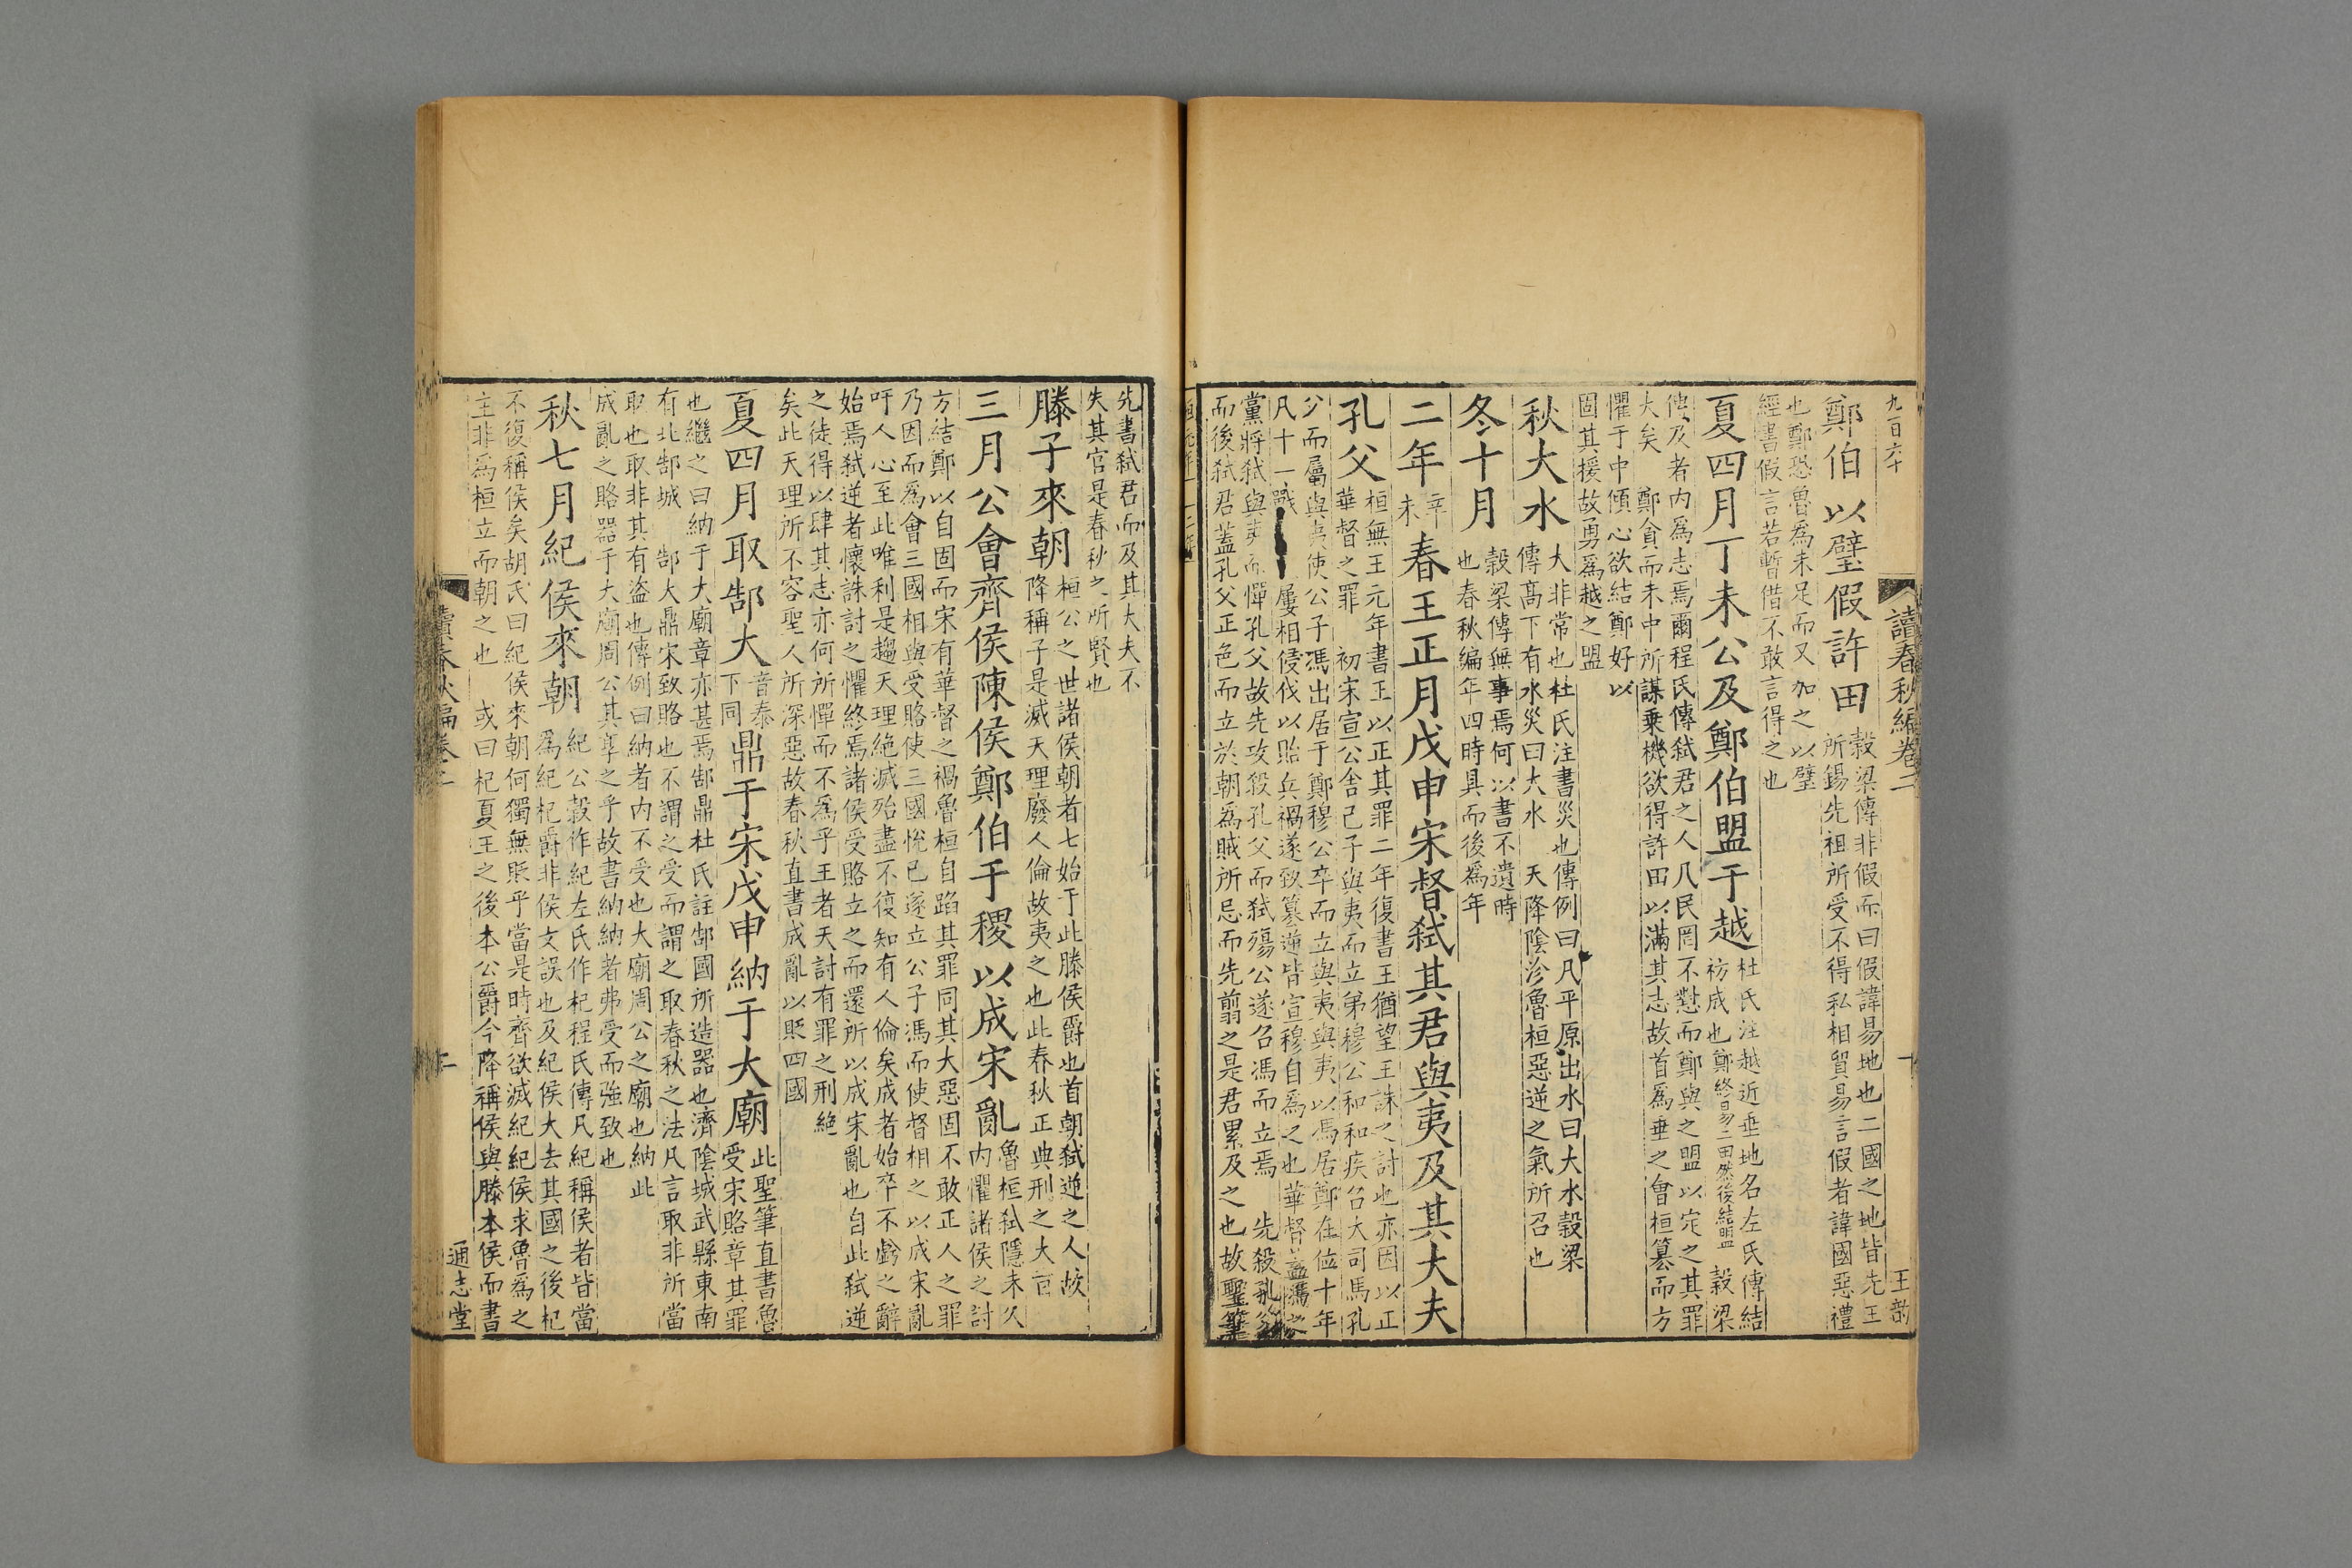 九百六十
讀春秋編卷二
王
鄭伯以璧假許田
穀梁傳非假而曰假諱易地也二國之地皆先王
所錫先祖所受不得私相貿易言假者諱國惡禮
也鄭恐魯爲未足而又加之以璧
經書假言若暫借不敢言得之也
夏四月丁未公及鄭伯盟于越
杜氏注越近垂地名左氏傳結
祊成也鄭終易二田然後結盟 穀梁
傳及者内爲志焉爾程氏傳弑君之人凡民罔不憝而鄭與之盟以定之其罪
大矣 鄭貪而未中所謀乗機欲得許田以滿其志故首爲垂之會桓簒而方
懼于中傾心欲結鄭好以
固其援故勇爲越之盟
秋大水
大非常也杜氏注書災也傳例曰凡平原出水曰大水穀梁
傳髙下有水災曰大水 天降陰沴魯桓惡逆之氣所召也
冬十月
穀梁傳無事焉何以書不遺時
也春秋編年四時具而後爲年
二年
辛
未
春王正月戊申宋督弑其君與夷及其大夫
孔父
桓無王元年書王以正其罪二年復書王猶望王誅之討也亦因以正
華督之罪 初宋宣公舍己子與夷而立弟穆公和和疾召大司馬孔
父而屬與夷使公子馮出居于鄭穆公卒而立與夷與夷以馮居鄭在位十年
凡十一戰 屢相侵伐以貽兵禍遂致簒逆皆宣穆自爲之也華督蓋馮之
黨將弑與夷而憚孔父故先攻殺孔父而弑殤公遂召馮而立焉 先殺孔後
而後弑君蓋孔父正色而立於朝爲賊所忌而先翦之是君累及之也故聖筆
先書弑君而及其大夫不
失其官是春秋之所賢也
滕子來朝
桓公之世諸侯朝者七始于此滕侯爵也首朝弑逆之人故
降稱子是滅天理廢人倫故夷之也此春秋正典刑之大旨
三月公會齊侯陳侯鄭伯于稷以成宋亂
魯桓弑隱未久
内懼諸侯之討
方結鄭以自固而宋有華督之禍魯桓自蹈其罪同其大惡固不敢正人之罪
乃因而爲會三國相與受賂使三國恱已遂立公子馮而使督相之以成宋亂
吁人心至此唯利是趨天理絶滅殆盡不復知有人倫矣成者始卒不虧之辭
始焉弑逆者懷誅討之懼終焉諸侯受賂立之而還所以成宋亂也自此弑逆
之徒得以肆其志亦何所憚而不爲乎王者天討有罪之刑絶
矣此天理所不容聖人所深惡故春秋直書成亂以貶四國
夏四月取郜大
音泰
下同
鼎于宋戊申納于大廟
此聖筆直書魯
受宋賂章其罪
也繼之曰納于大廟章亦甚焉郜鼎杜氏註郜國所造器也濟陰城武縣東南
有北郜城 郜大鼎宋致賂也不謂之受而謂之取春秋之法凡言取非所當
取也取非其有盜也傳例曰納者内不受也大廟周公之廟也納此
成亂之賂器于大廟周公其享之乎故書納納者弗受而強致也
秋七月紀侯來朝
紀公穀作紀左氏作杞程氏傳凡紀稱侯者皆當
爲紀杞爵非侯文誤也及紀侯大去其國之後杞
不復稱侯矣胡氏曰紀侯來朝何獨無貶乎當是時齊欲滅紀紀侯求魯爲之
主非爲桓立而朝之也 或曰杞夏王之後本公爵今降稱侯與滕本侯而書
讀春秋編卷二
通志堂